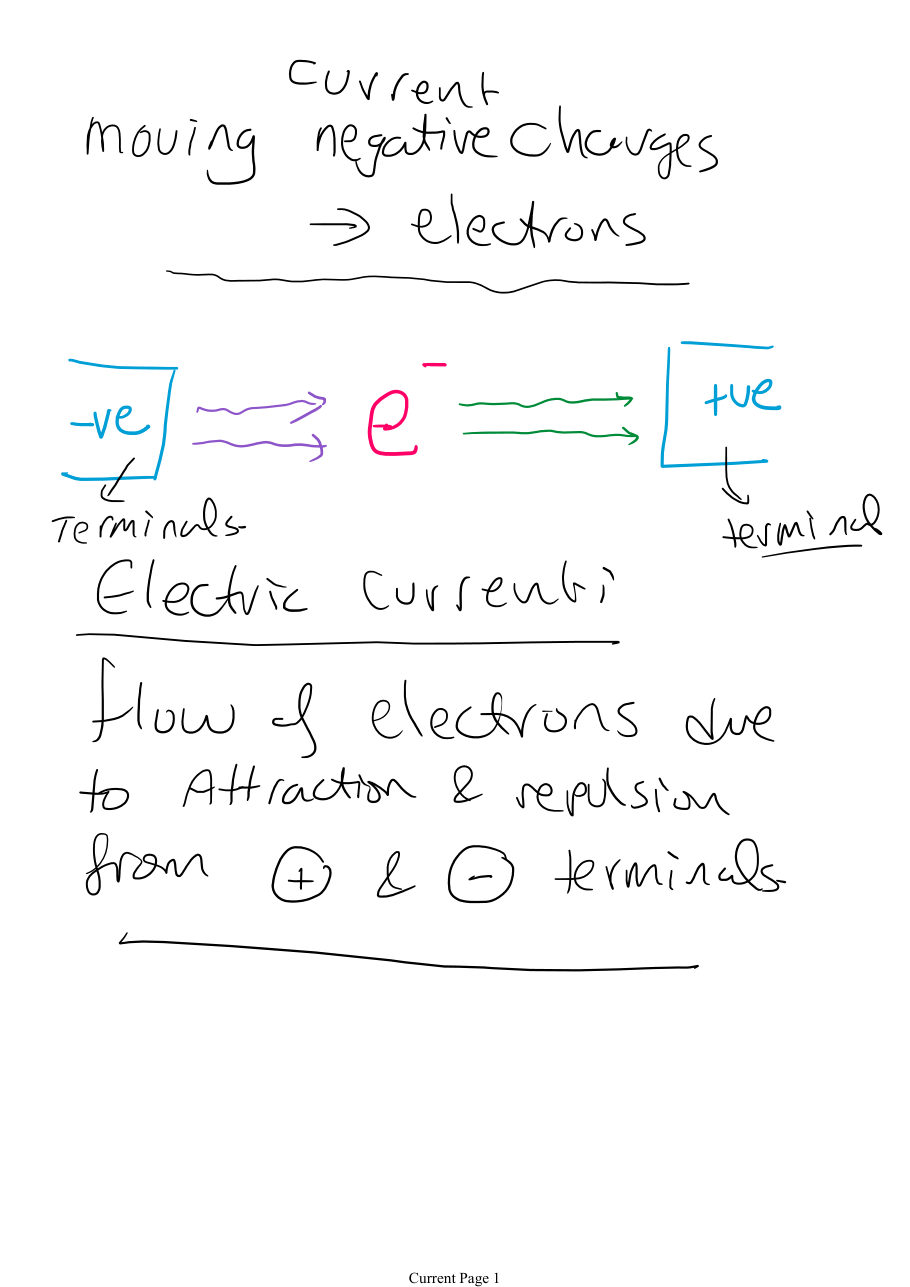 current
moving negative charges
→ electrons
-ve e⁻ +ve
Terminals
terminal
Electric current:
flow of electrons due
to Attraction & repulsion
from ⊕ & ⊖ terminals
Current Page 1